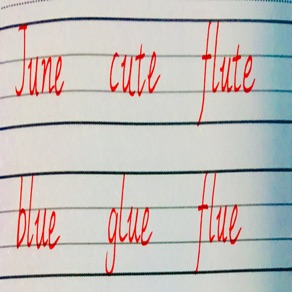 June cute flute
blue glue flue